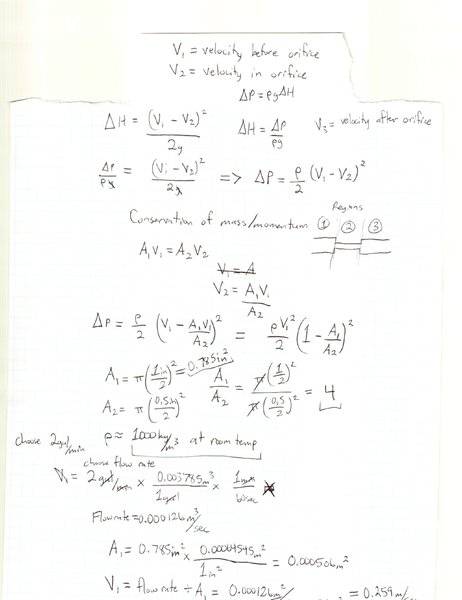 V₁ = velocity before orifice
V₂ = velocity in orifice
ΔP = ρgΔH
ΔH = (V₁ - V₂)²/2g ΔH = ΔP/ρg V₃ = velocity after orifice
ΔP/ρg = (V₁ - V₂)²/2g => ΔP = ρ/2 (V₁ - V₂)²
Regions
Conservation of mass/momentum ① ② ③
A₁V₁ = A₂V₂
V₁ = A
V₂ = A₁V₁/A₂
ΔP = ρ/2 (V₁ - A₁V₁/A₂)² = ρV₁²/2 (1 - A₁/A₂)²
A₁ = π(1in/2)² = 0.785in² A₁/A₂ = π(1/2)²/π(0.5/2)² = 4
A₂ = π(0.5in/2)²
choose 2gal/min ρ ≈ 1000kg/m³ at room temp
choose flow rate
2 gal/min × 0.003785m³/1gal × 1min/60sec
Flow rate = 0.000126m³/sec
A₁ = 0.785in² × 0.00064545m²/1in² = 0.000506m²
V₁ = flow rate ÷ A₁ = 0.000126m³ = 0.259m/s